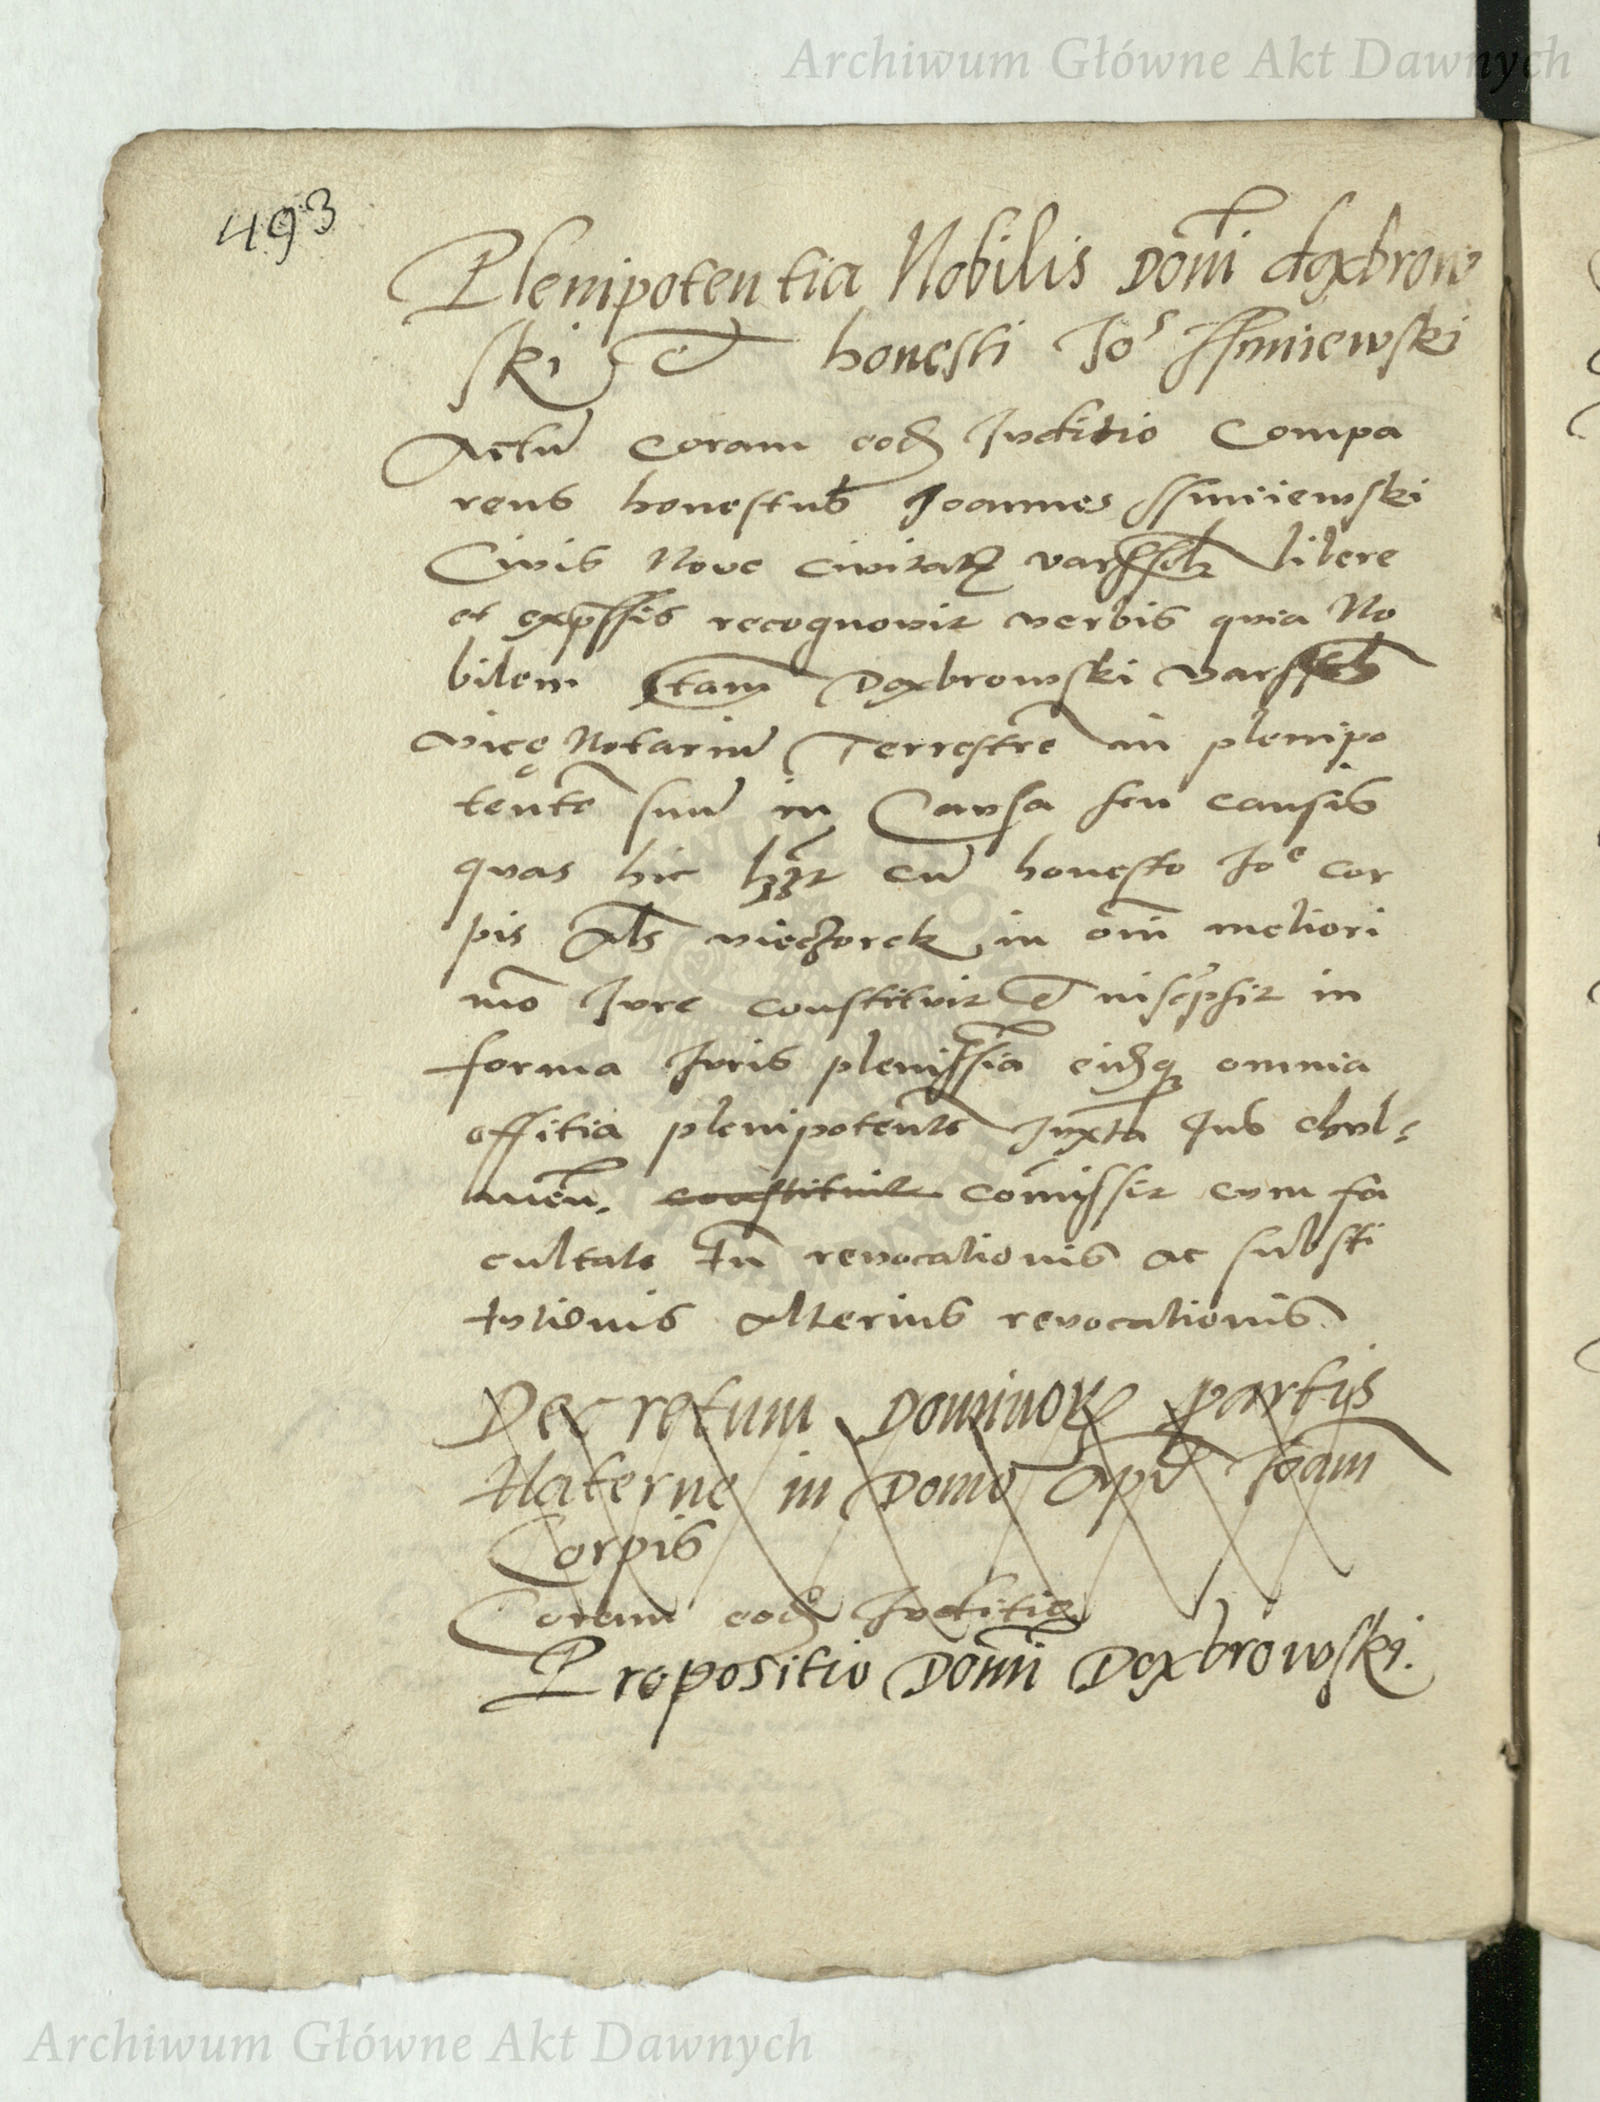 Archiwum Główne Akt Dawnych
493
Plenipotentia Nobilis Domi doxbrow
ski et honesti Jois Ssmiewski
Actu coram eod Juditio Compa
rens honestus Joannes Ssmiiewski
Civis Nove civitatis varssch libere
et expssis recognovit verbis quia No
bilem Stam Doxbrowski varssch
vice Notariu Terrestre in plenipo
tente suu in Causa seu causis
quas hic hzt cu honesto Joe cor
pis als wieczorek in omi meliori
mo Jure constituit et
in
forma Juris plenissia eidq omnia
offitia plenipotente Juxta Jus chul-
men. constituit comissit cum fa
cultate tn revocationis ac substi
tutionis alterius revocationis
Decretum Dominor partis
Materne in Domo apd Joam
Corpis
Coram eod Juditio
Propositio Domi Doxbrowski.
Archiwum Główne Akt Dawnych